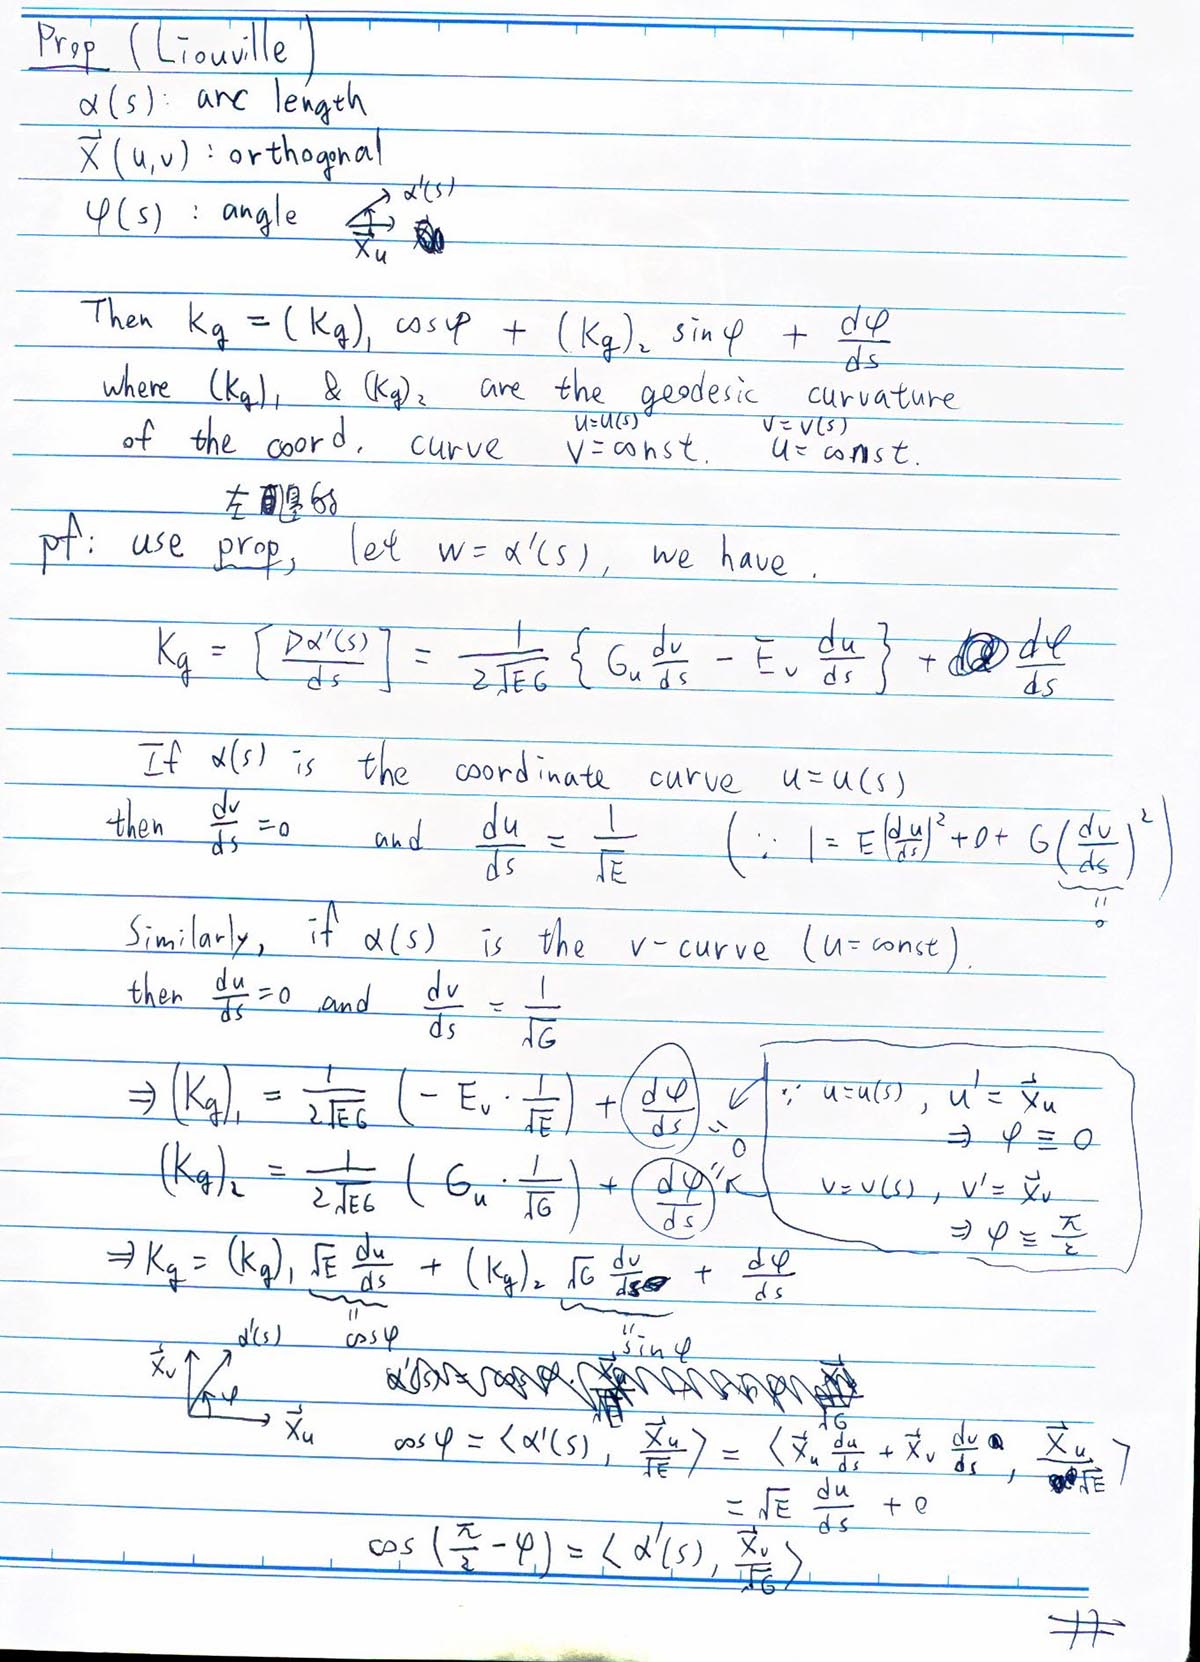 Prop (Liouville)
α(s): arc length
X⃗(u,v): orthogonal
φ(s): angle α'(s) X⃗u
Then Kg = (Kg)₁ cosφ + (Kg)₂ sinφ + dφ/ds
where (Kg)₁ & (Kg)₂ are the geodesic curvature
u=u(s) v=v(s)
of the coord. curve v=const. u=const.
左 的
pf: use prop, let w=α'(s), we have.
Kg = [Dα'(s)/ds] = 1/(2√EG) {Gu dv/ds − Ev du/ds} + dφ/ds
If α(s) is the coordinate curve u=u(s)
then dv/ds=0 and du/ds = 1/√E (∵ 1 = E(du/ds)² + 0 + G(dv/ds)²)
"0
Similarly, if α(s) is the v-curve (u=const).
then du/ds=0 and dv/ds = 1/√G
⇒ (Kg)₁ = 1/(2√EG) (−Ev · 1/√E) + dφ/ds
" 0
(Kg)₂ = 1/(2√EG) (Gu · 1/√G) + dφ/ds "
∵ u=u(s), u' = X⃗u
⇒ φ ≡ 0
v=v(s), v' = X⃗v
⇒ φ ≡ π/2
⇒ Kg = (Kg)₁ √E du/ds + (Kg)₂ √G dv/ds + dφ/ds
" cosφ " sinφ
X⃗v α'(s) φ X⃗u
cosφ = ⟨α'(s), X⃗u/√E⟩ = ⟨X⃗u du/ds + X⃗v dv/ds, X⃗u/√E⟩
= √E du/ds + 0
cos(π/2 − φ) = ⟨α'(s), X⃗v/√G⟩